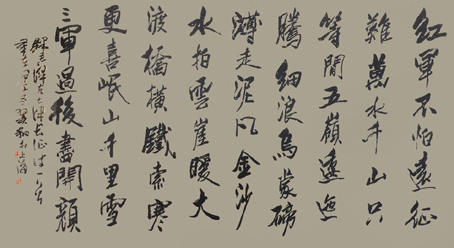 紅軍不怕遠征
難萬水千山只
等閒五嶺逶迤
騰細浪烏蒙磅
礴走泥丸金沙
水拍雲崖暖大
渡橋橫鐵索寒
更喜岷山千里雪
三軍過後盡開顏